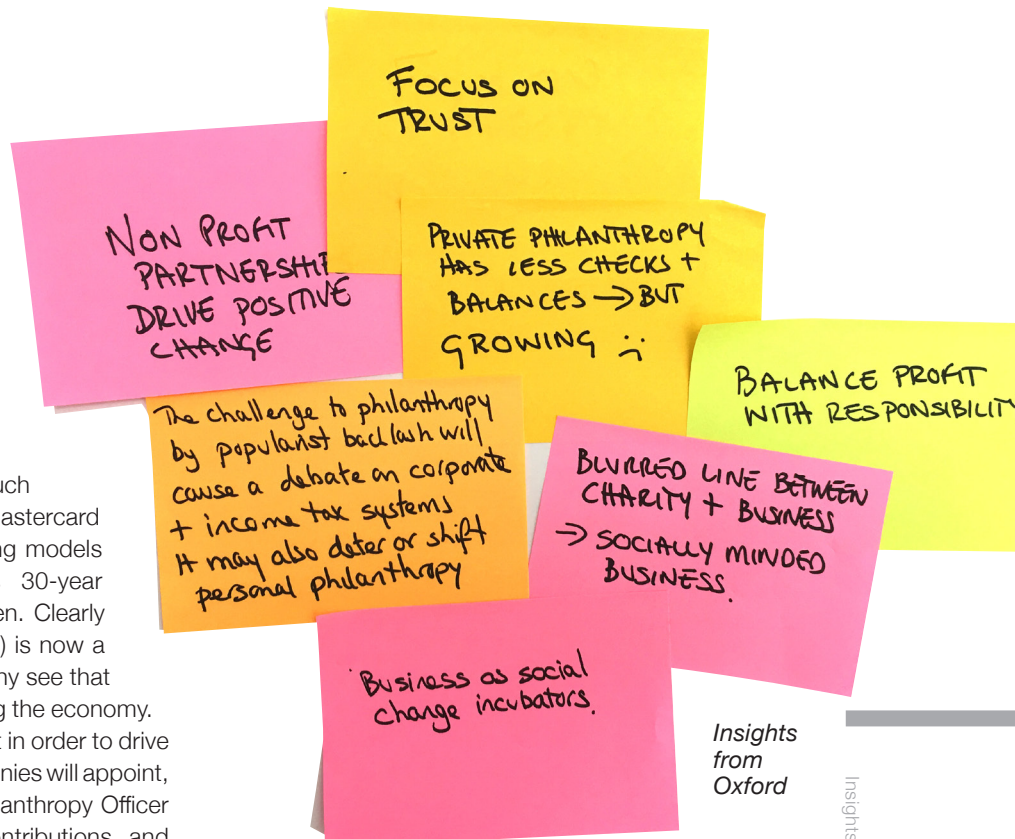 FOCUS ON
TRUST
NON PROFIT
PARTNERSHIP
DRIVE POSITIVE
CHANGE
PRIVATE PHILANTHROPY
HAS LESS CHECKS +
BALANCES → BUT
GROWING :(
BALANCE PROFIT
WITH RESPONSIBILIT
The challenge to philanthropy
by popularist backlash will
cause a debate on corporate
+ income tax systems
It may also deter or shift
personal philanthropy
BLURRED LINE BETWEEN
CHARITY + BUSINESS
→ SOCIALLY MINDED
BUSINESS.
Business as social
change incubators.
uch
astercard
ng models
30-year
en. Clearly
) is now a
ny see that
g the economy.
t in order to drive
nies will appoint,
anthropy Officer
ntributions and
Insights
from
Oxford
Insights